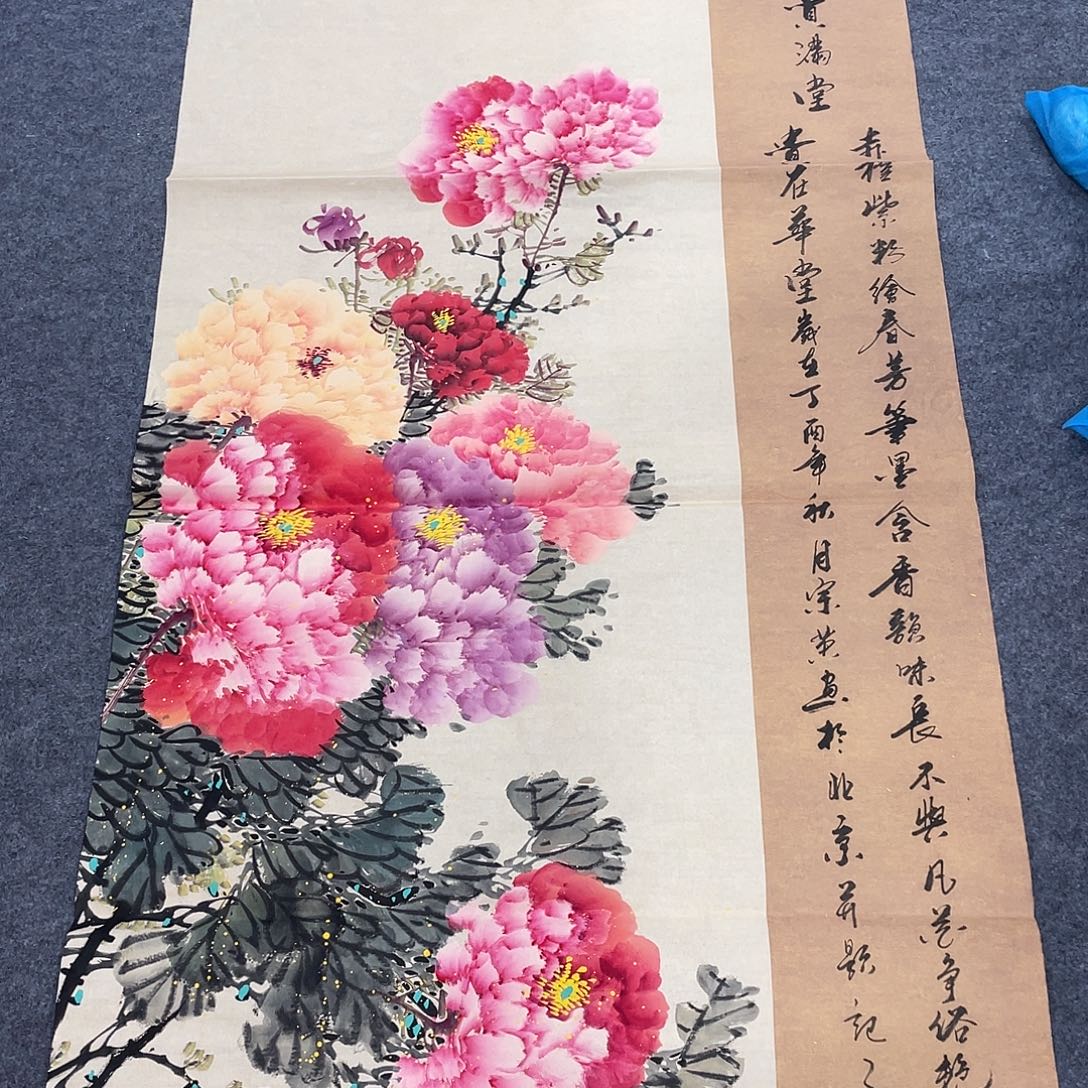 貴滿堂
赤橙紫粉繪春芳筆墨含香韻味長不與凡花爭俗
貴在華堂歲在丁酉年秋月宋黄画於北京并题记